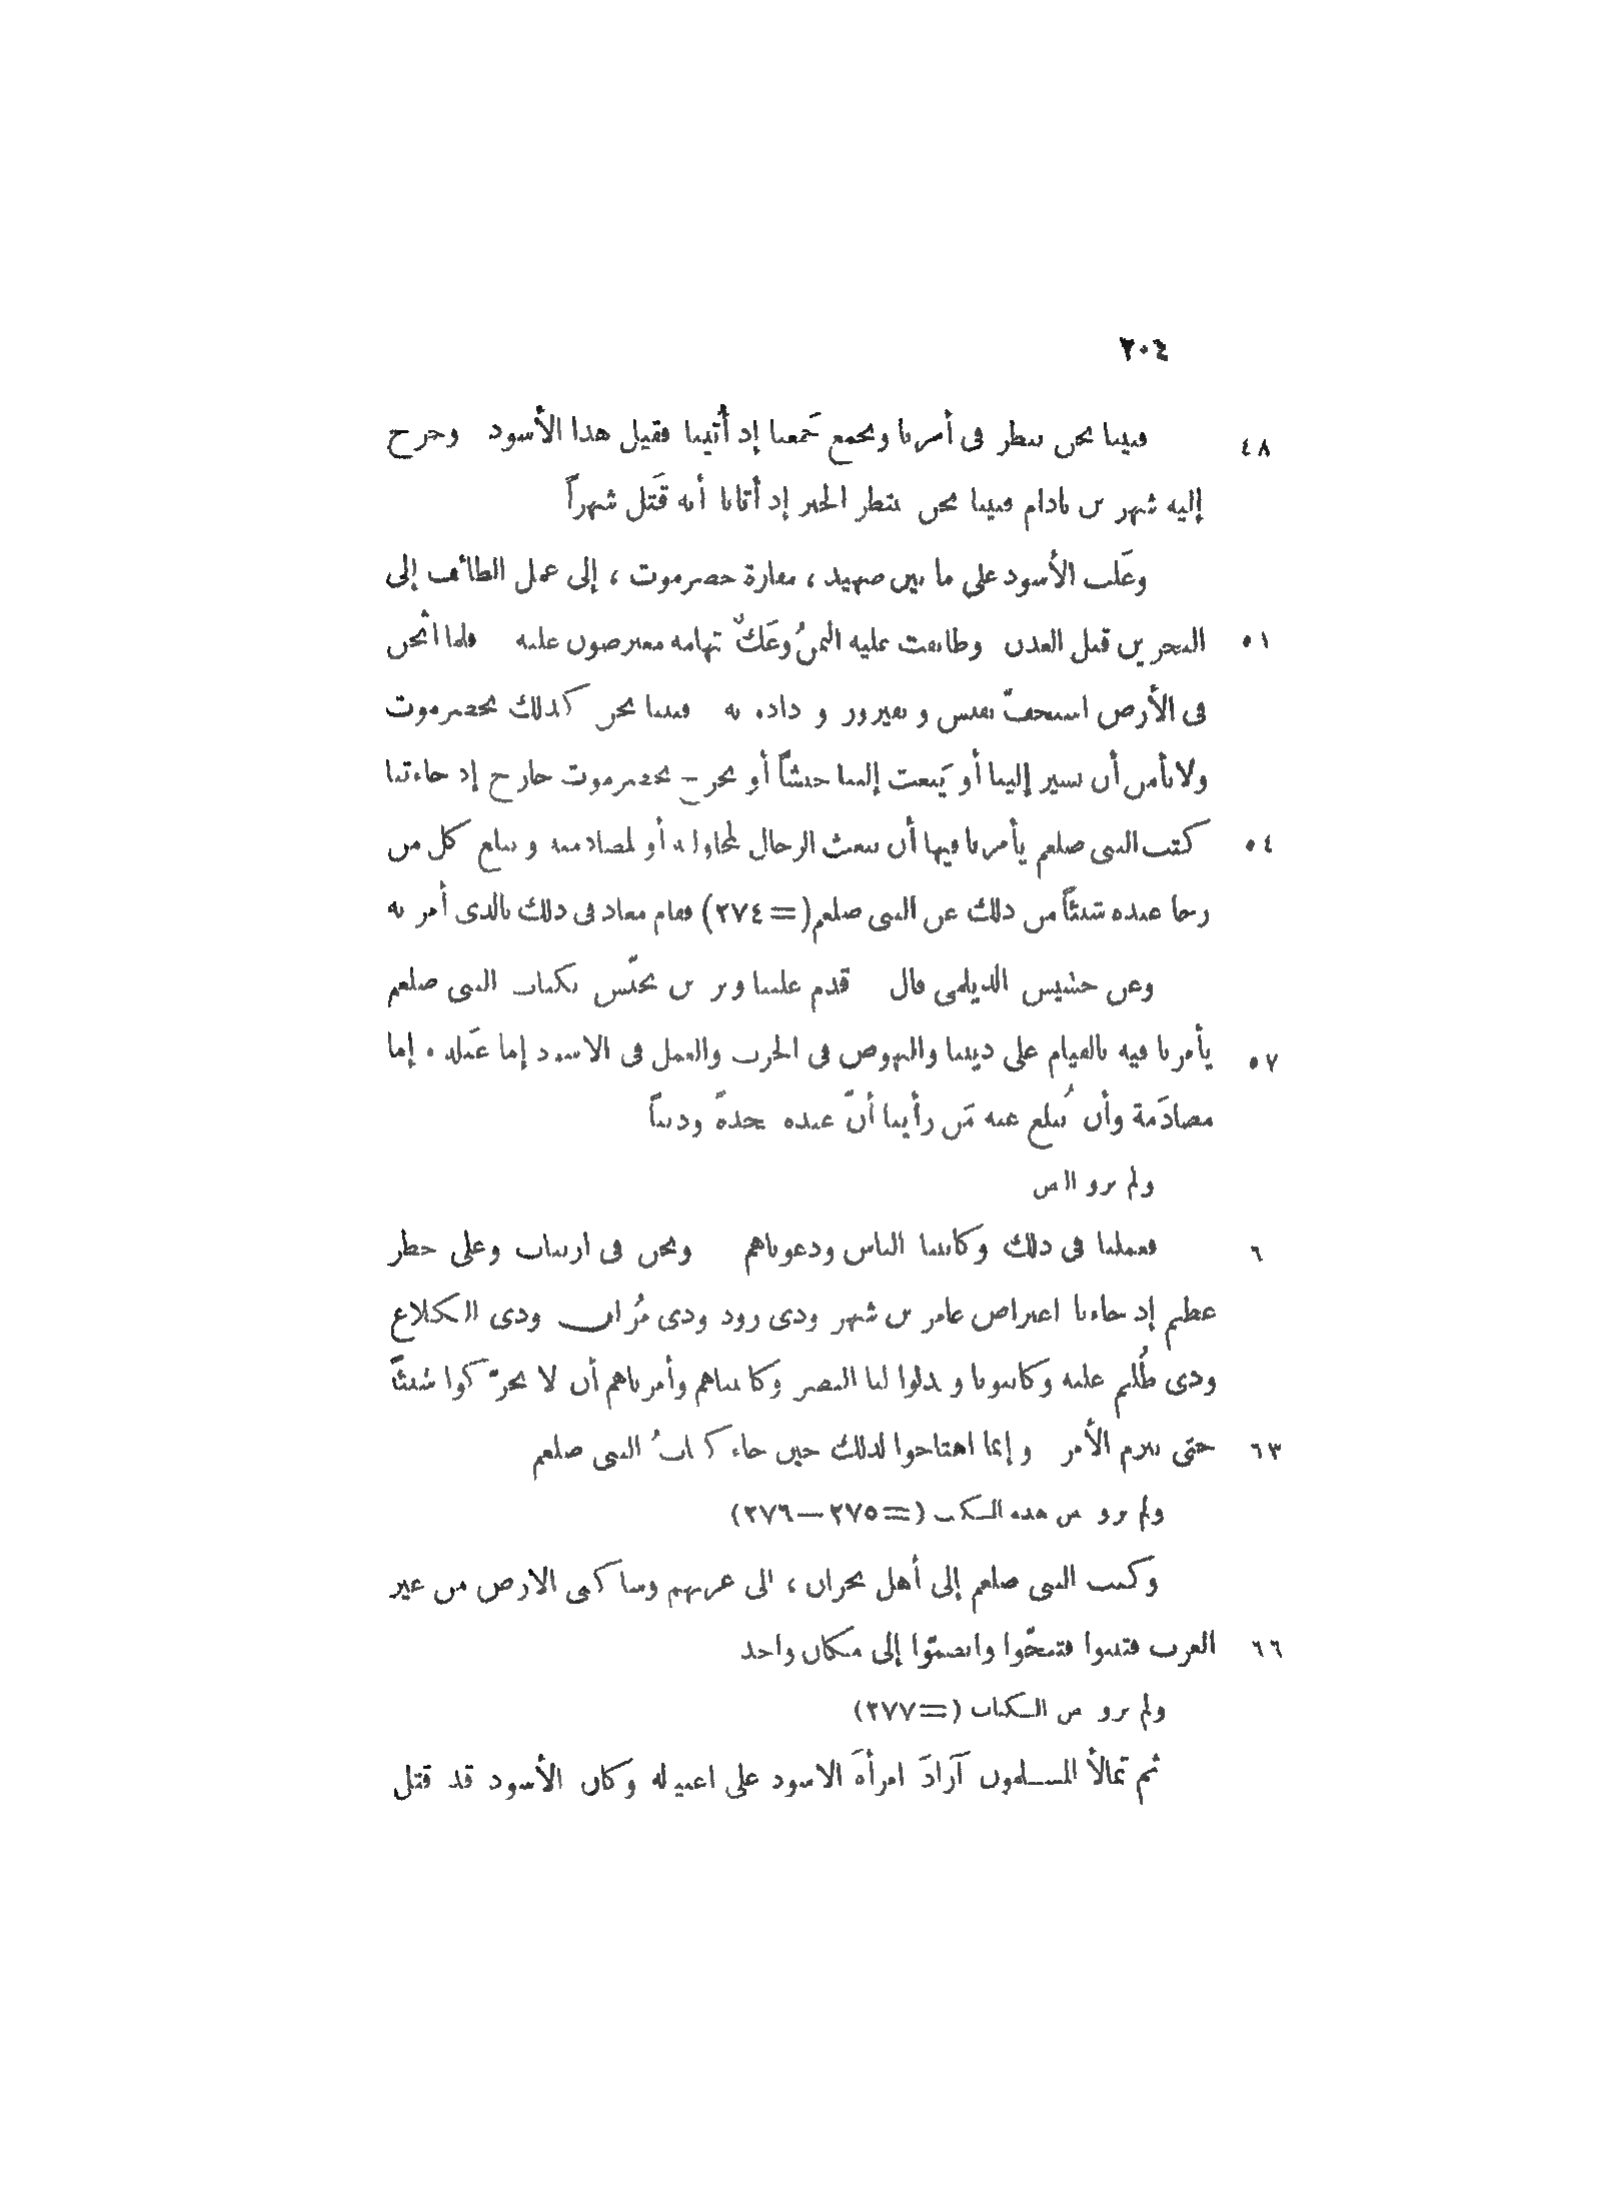 ٢٠٤
٤٨ فبينا نحن ننظر فى أمرنا ونجمع جَمعنا إذ أُتينا فقيل هذا الأسود وخرج
إليه شهر بن باذام فبينا نحن ننتظر الخبر إذ أتانا أنه قَتل شهراً
وغَلب الأسود على ما بين صهيد ، مفازة حضرموت ، إلى عمل الطائف إلى
٥١ البحرين قبل العدن وطابقت عليه اليمنُ وعَكٌ تهامه معترضون عليه فلما اثخن
فى الأرض استخفّ بقيس و بفيروز و داذه به فبينا نحن كذلك بحضرموت
ولا نأمن أن يسير إلينا أو يَبعث إلينا جيشاً أو يخرج بحضرموت خارج إذ جاءتنا
٥٤ كتب النبى صلعم يأمرنا فيها أن نبعث الرجال لمجاولته أو لمصادمته و نبلغ كل من
رجا عنده شيئاً من ذلك عن النبى صلعم (=٢٧٤) فقام معاذ فى ذلك بالذى أمر به
وعن جشيش الديلمى قال قدم علينا وبر بن يحنّس بكتاب النبى صلعم
٥٧ يأمرنا فيه بالقيام على ديننا والنهوض فى الحرب والعمل فى الاسود إما غيلة و إما
مصادَمة وأن نُبلغ عنه مَن رأينا أنّ عنده نجدةً وديناً
ولم يرو النص
٦ فعملنا فى ذلك وكاتبنا الناس ودعوناهم ونحن فى ارتياب وعلى خطر
عظيم إذ جاءنا اعتراض عامر بن شهر وذى زود وذى مُران وذى الكلاع
وذى ظُليم عليه وكاتبونا و بذلوا لنا النصر وكاتبناهم وأمرناهم أن لا يحرّكوا شيئاً
٦٣ حتى نبرم الأمر وإنما اهتاجوا لذلك حين جاء كتابُ النبى صلعم
ولم يرو نص هذه الكتب (=٢٧٥—٢٧٦)
وكتب النبى صلعم إلى أهل نجران ، الى عربهم وساكنى الارض من غير
٦٦ العرب فثبتوا فتنحّوا وانضمّوا إلى مكان واحد
ولم يرو نص الكتاب (=٢٧٧)
ثم تمالأ المسلمون آزادَ امرأةَ الاسود على اغتياله وكان الأسود قد قتل